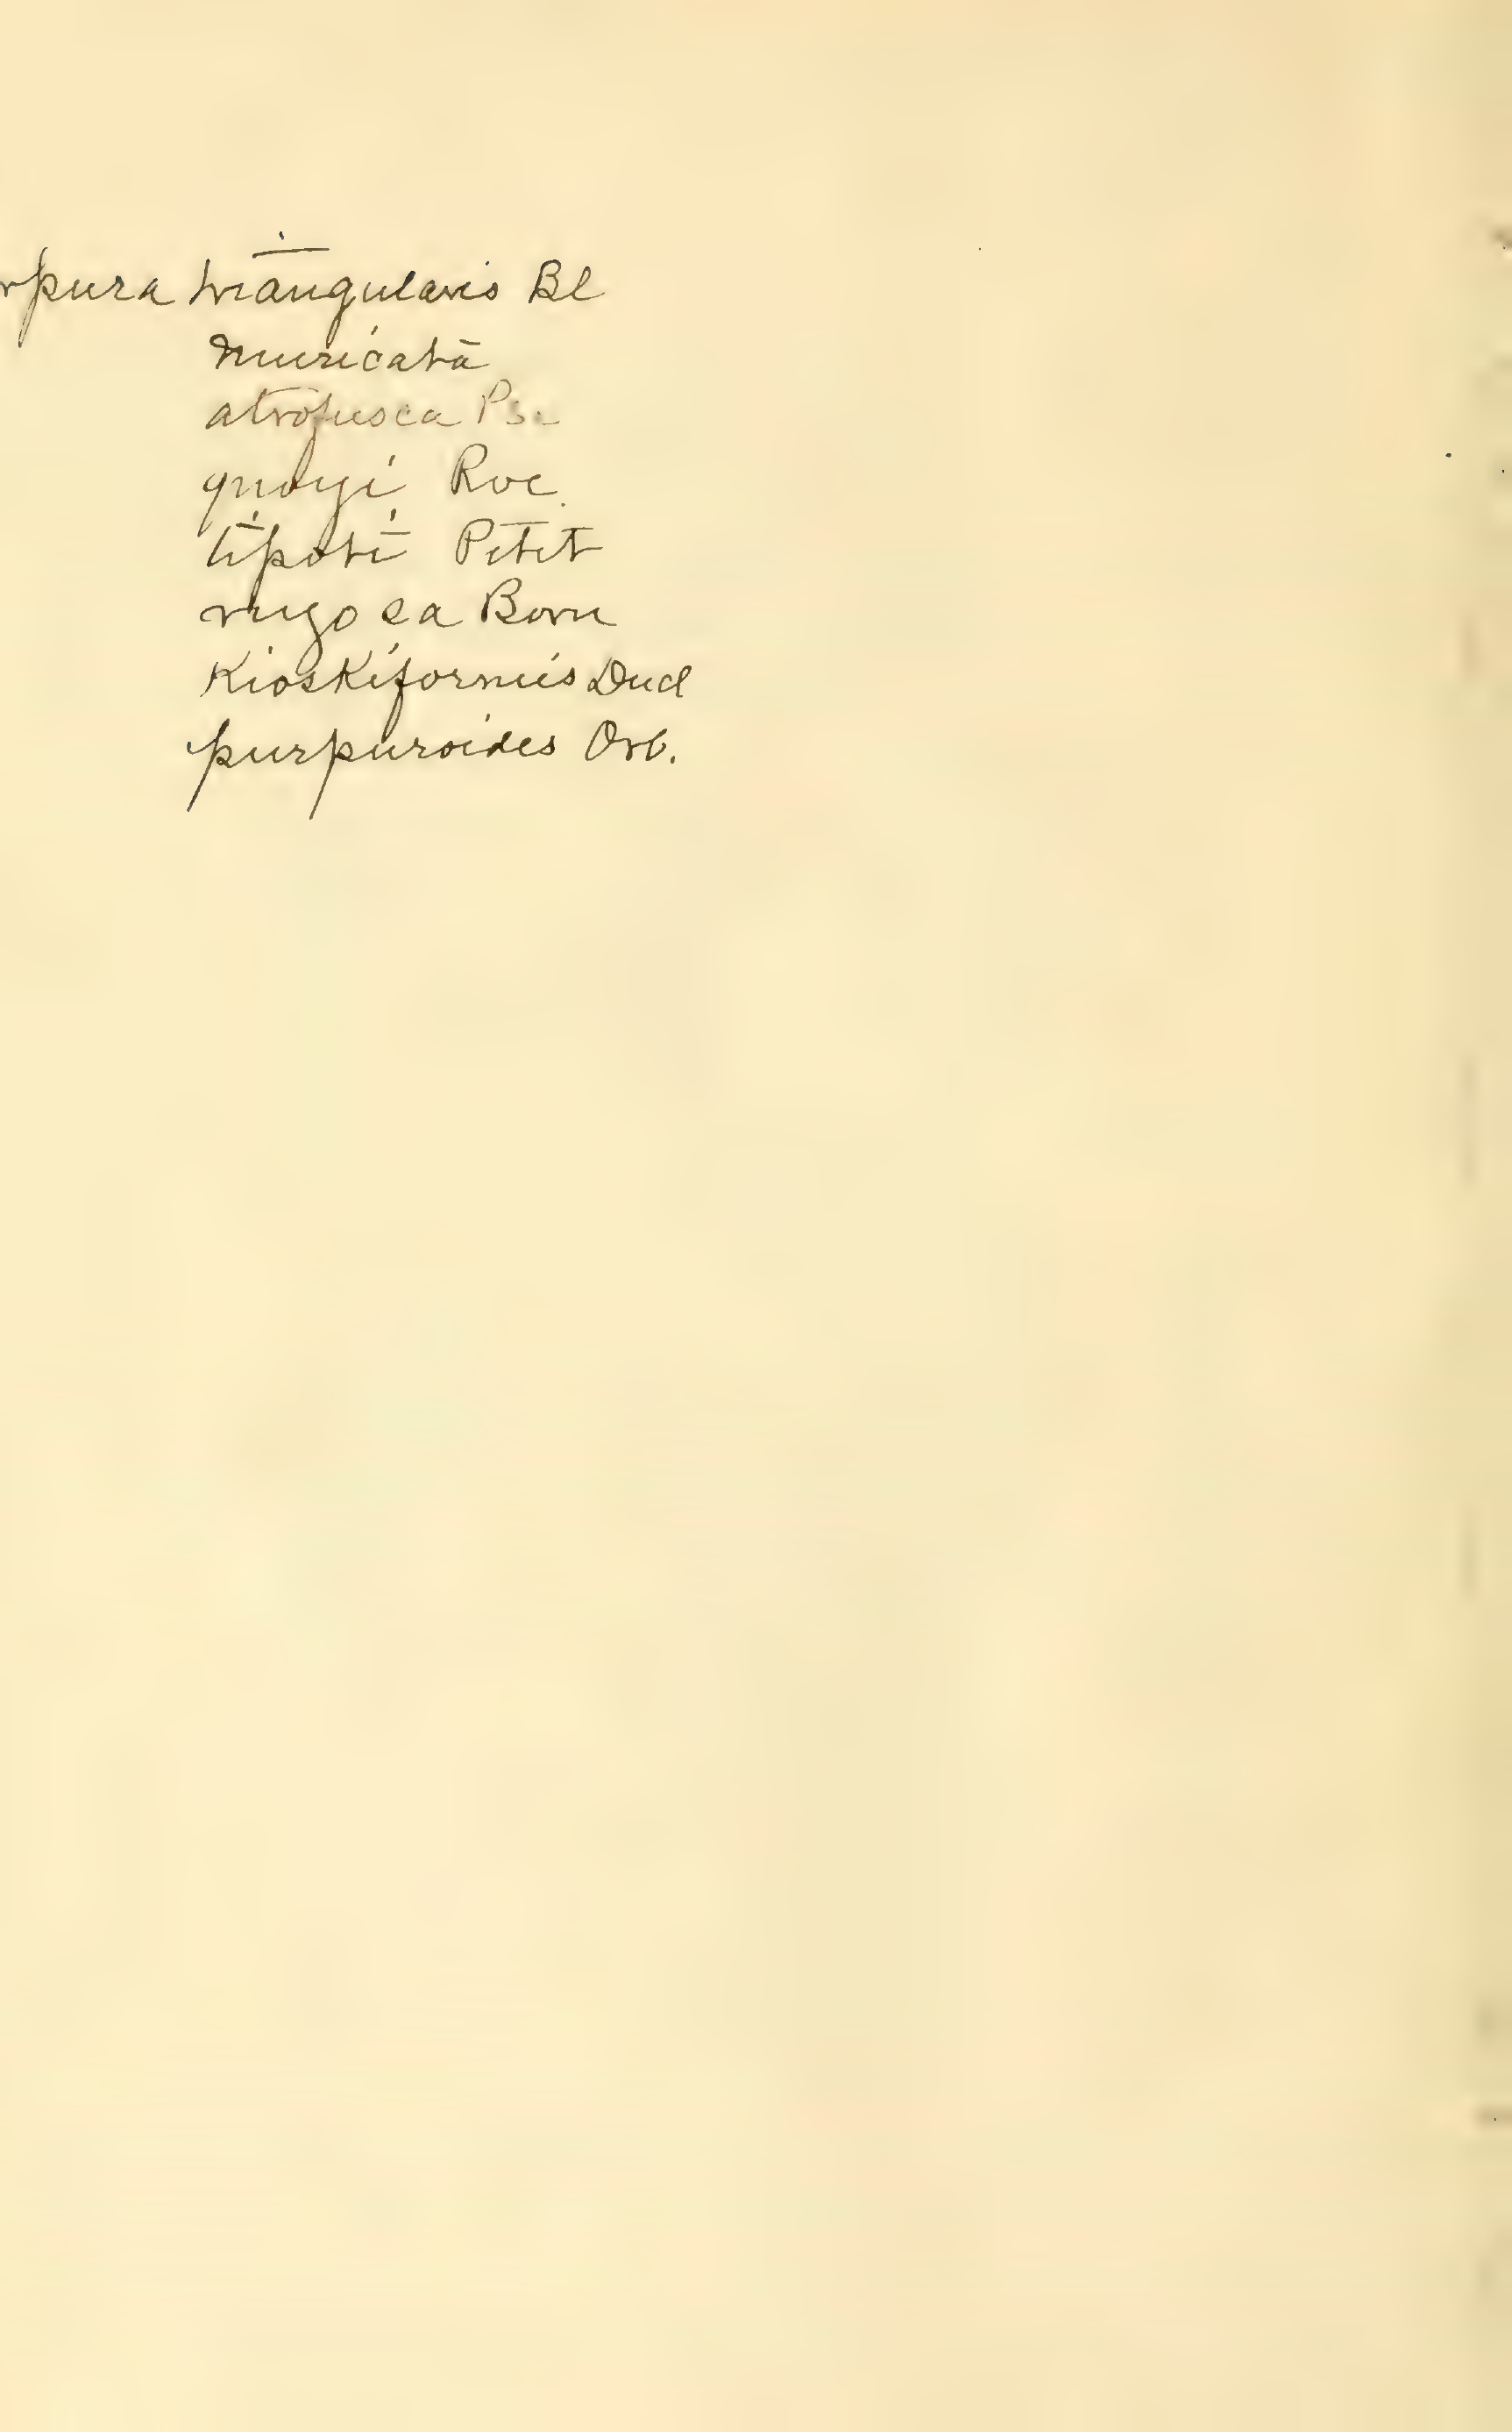 rpura triangularis Bl
muricata
atrofusca Ps.
quoyi Rve
tipoti Petit
rugosa Born
Kioskiformis Ducl
purpuroides Orb.